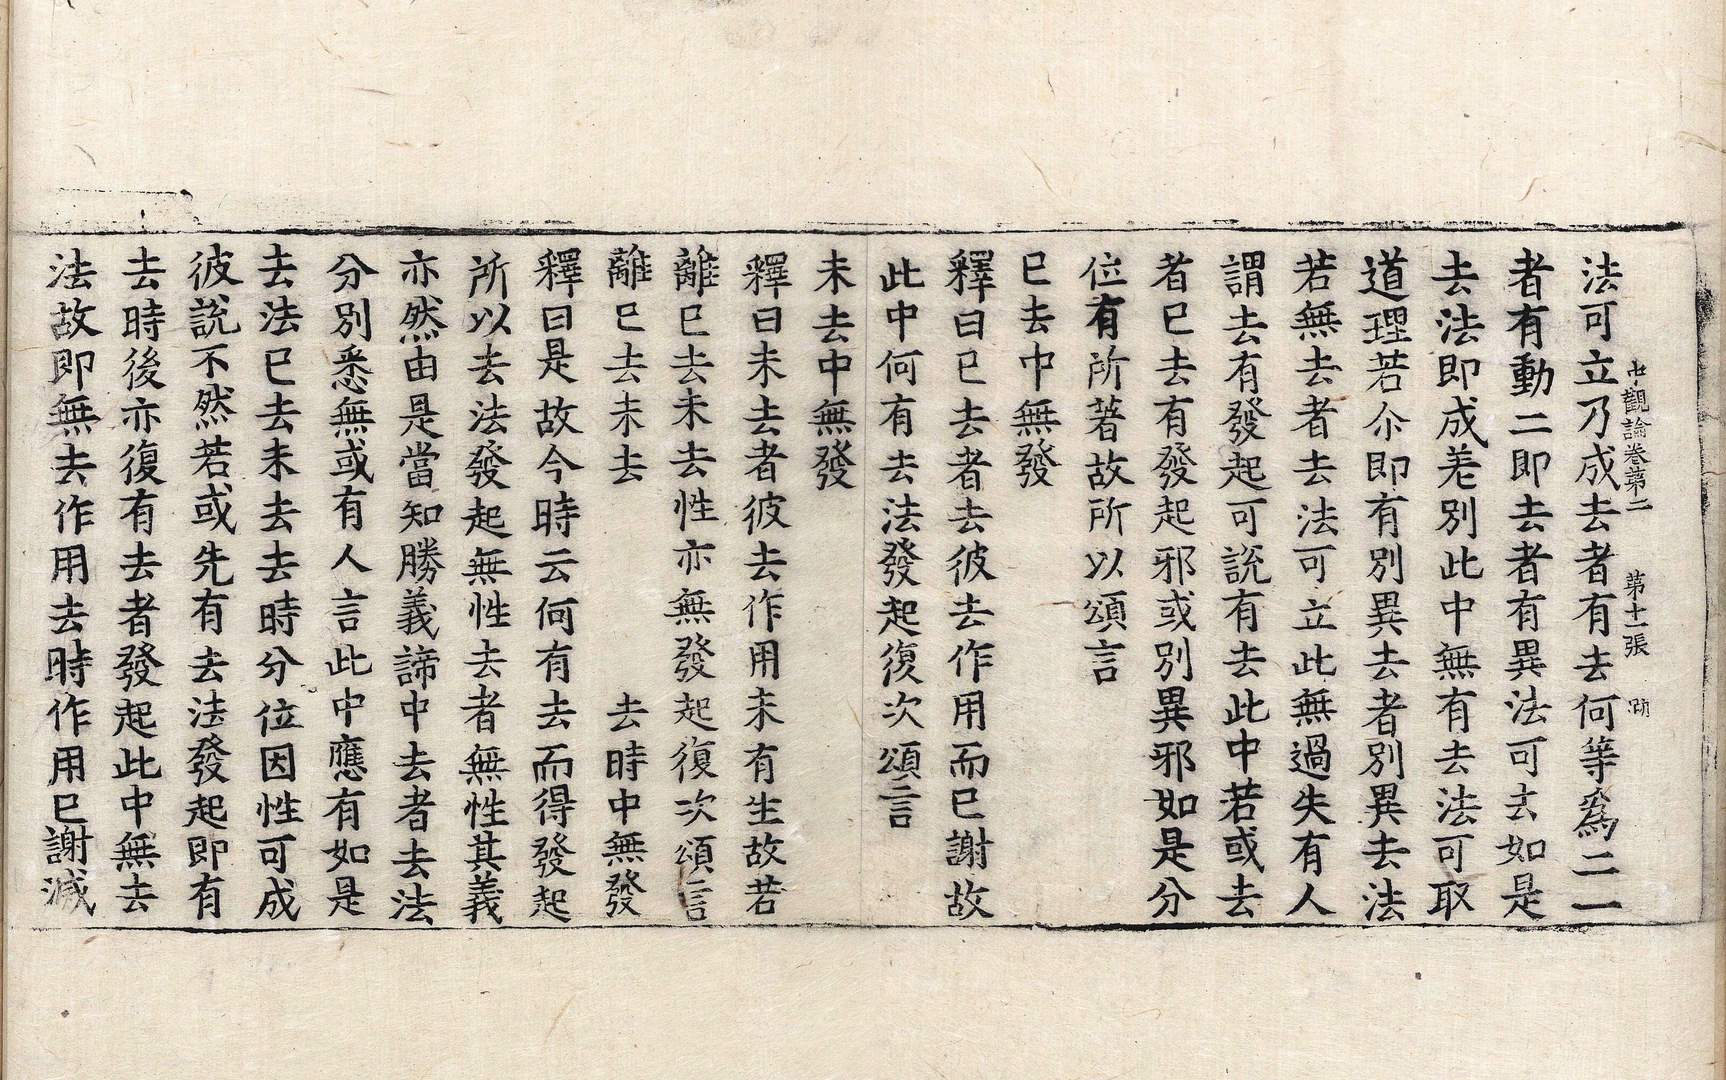 中觀論卷第二 第十一張
法可立乃成去者有去何等為二一
者有動二即去者有異法可去如是
去法即成差別此中無有去法可取
道理若尒即有別異去者別異去法
若無去者去法可立此無過失有人
謂去有發起可說有去此中若或去
者已去有發起邪或別異邪如是分
位有所著故所以頌言
已去中無發
釋曰已去者去彼去作用而已謝故
此中何有去法發起復次頌言
未去中無發
釋曰未去者彼去作用未有生故若
離已去未去性亦無發起復次頌言
離已去未去 去時中無發
釋曰是故今時云何有去而得發起
所以去法發起無性去者無性其義
亦然由是當知勝義諦中去者去法
分別悉無或有人言此中應有如是
去法已去未去去時分位因性可成
彼說不然若或先有去法發起即有
去時後亦復有去者發起此中無去
法故即無去作用去時作用已謝滅